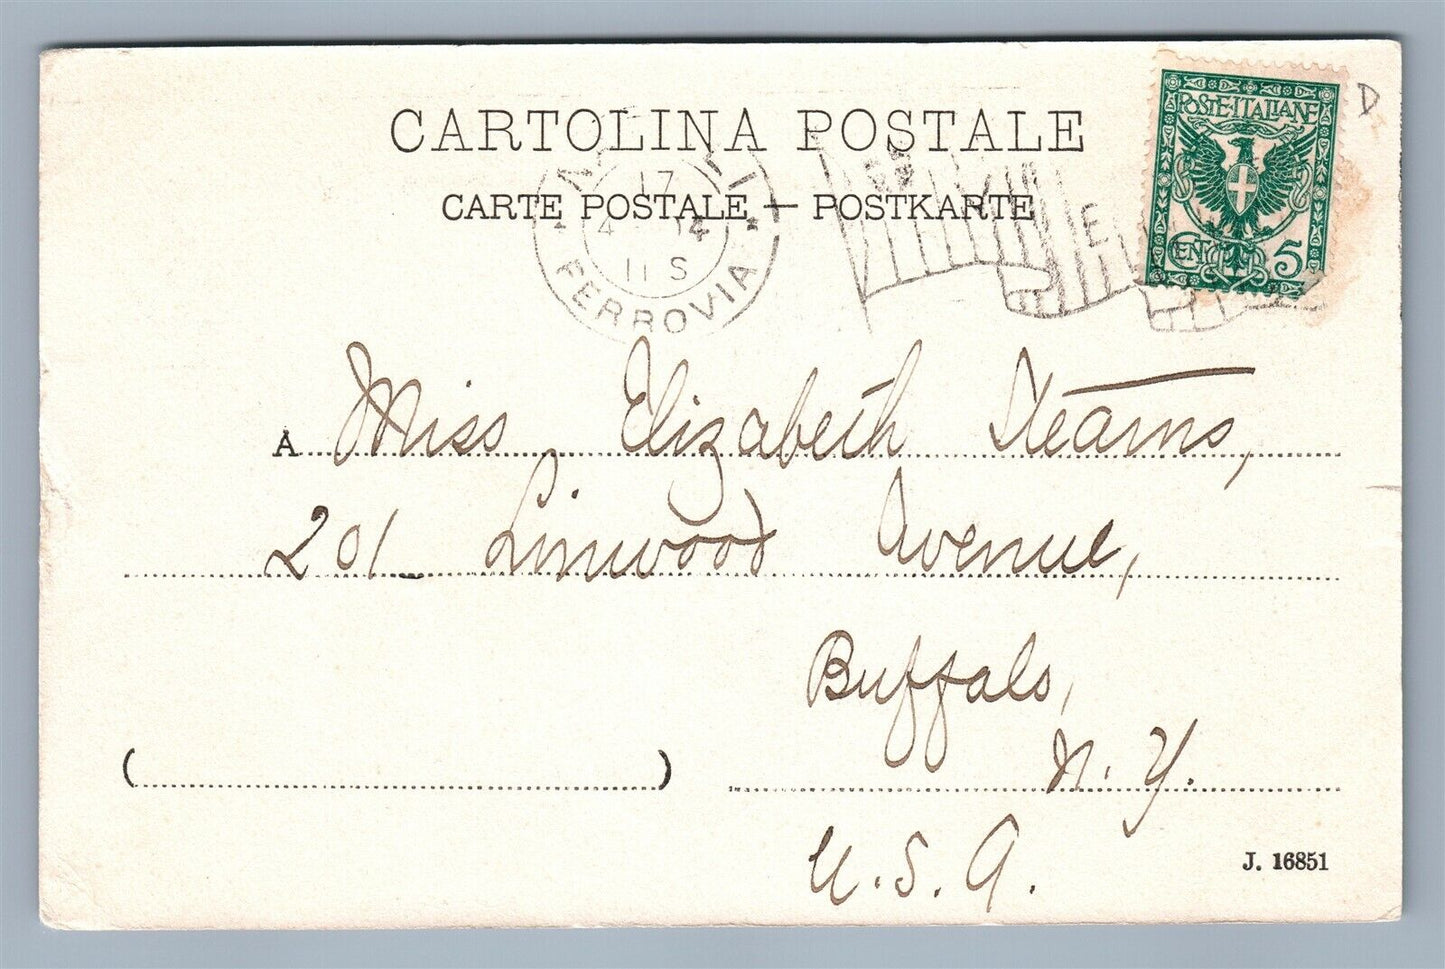 CARTOLINA POSTALE
CARTE POSTALE — POSTKARTE
POSTE·ITALIANE
CENT 5
D
17
4 14
11 S
FERROVIA
A Miss Elizabeth Stearns,
201 Linwood Avenue,
Buffalo,
N. Y.
U. S. A.
( )
J. 16851